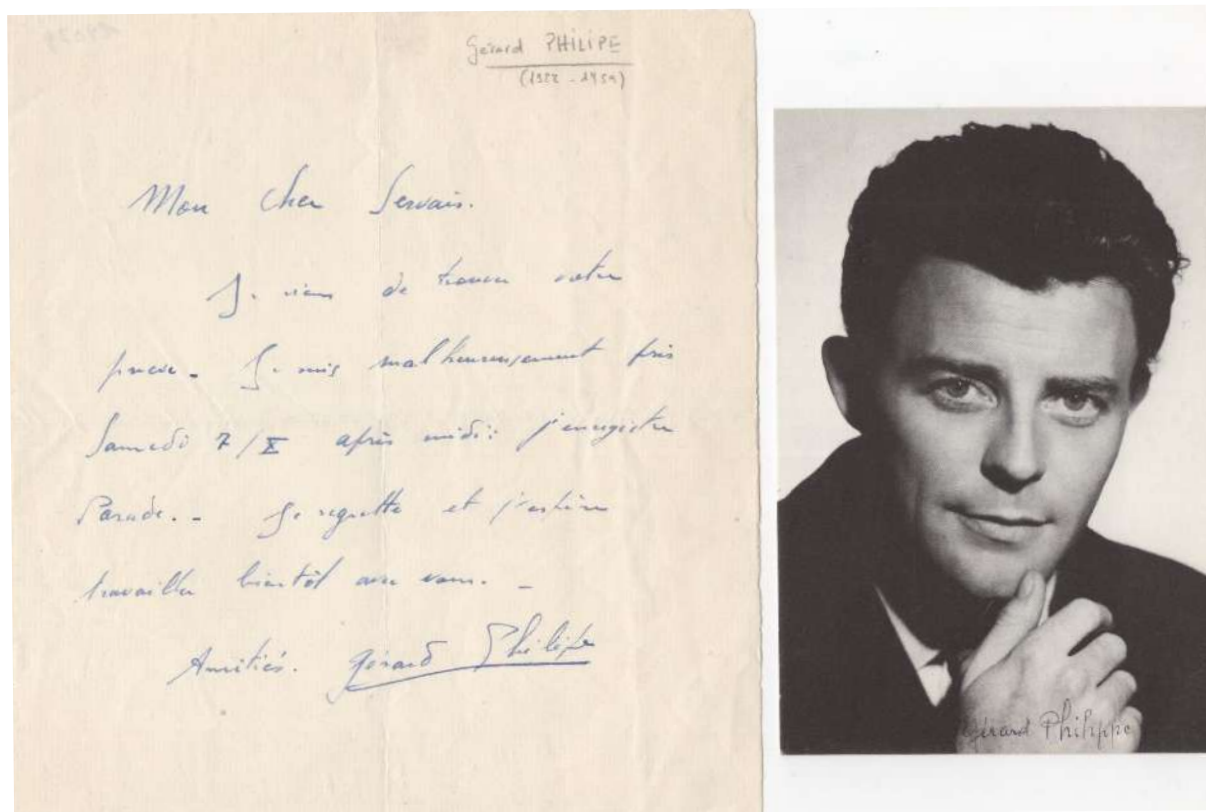 Gérard PHILIPE
(1922 - 1959)
Mon cher Servais.
Je viens de trouver votre
pneu. - Je suis malheureusement pris
Samedi 7/X après midi: j'enregistre
Parade. - Je regrette et j'espère
travailler bientôt avec vous. -
Amitiés. Gérard Philipe
Gérard Philippe